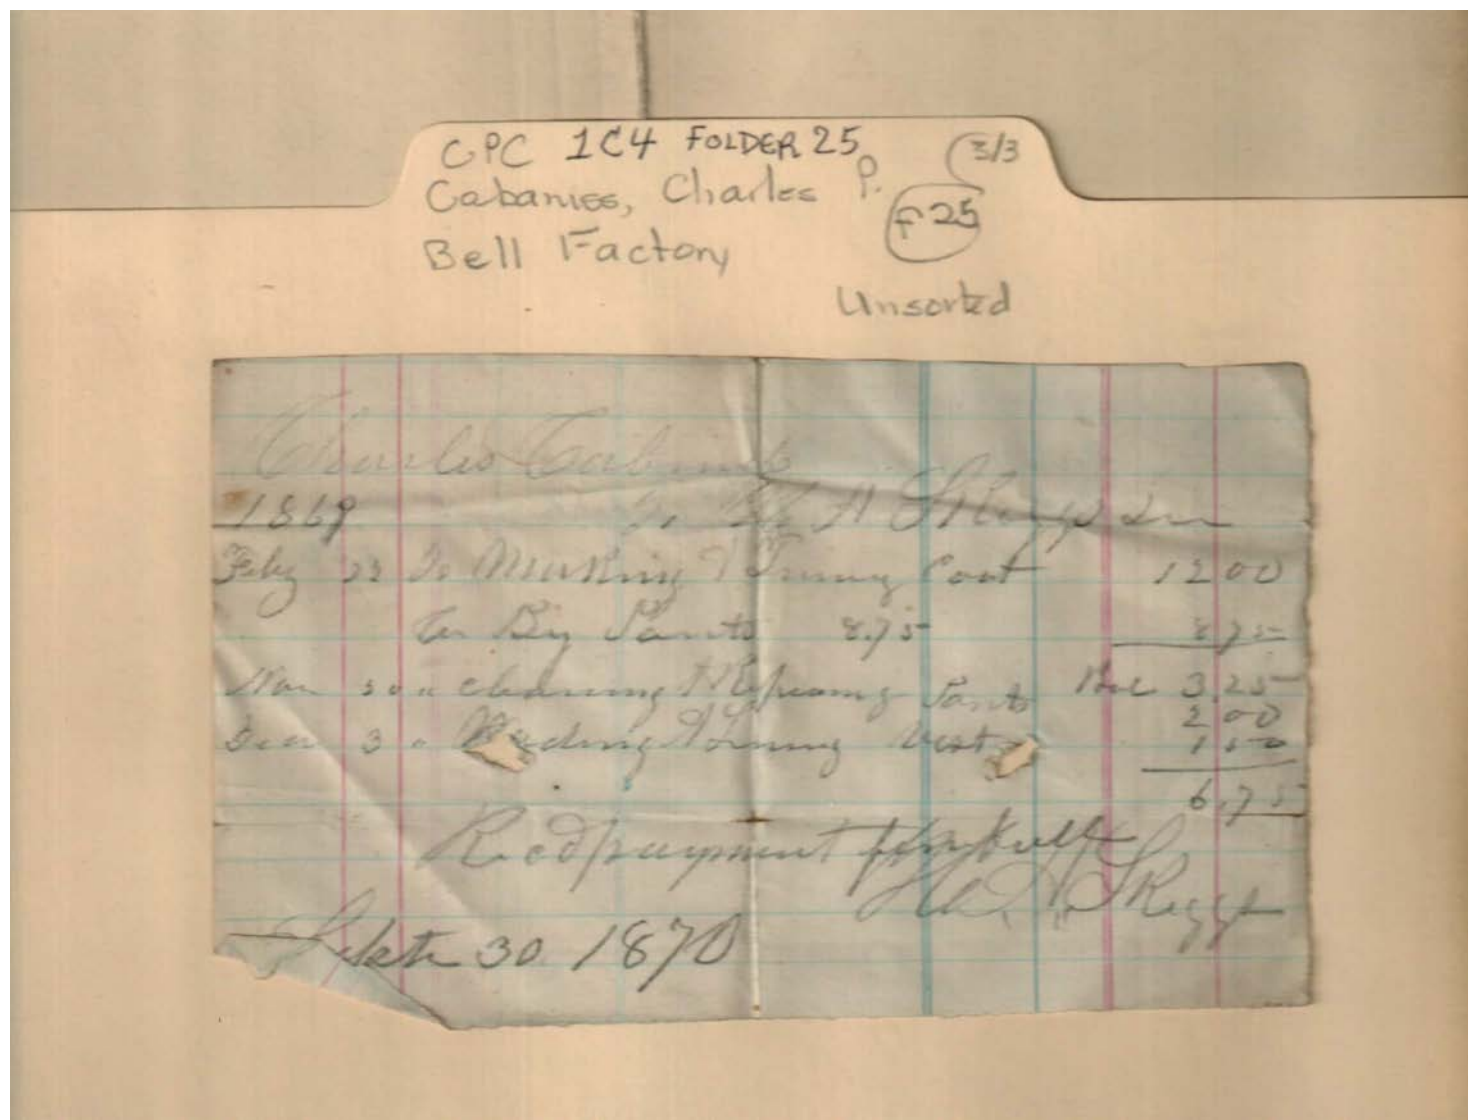 CPC 1C4 FOLDER 25
3/3
Cabaniss, Charles P.
F25
Bell Factory
Unsorted
Charles Cabiniss
1869 To A Skeggs Dr
Feby 22 To Making & Triming Coat 12 00
Cr By Pants 8.75 8 75
Bal 3.25
Nov 30 " cleaning & Repairing Pants 2 00
3 " & Triming Vest 1 50
6.75
Recd payment in full
A Skeggs
Sept 30 1870